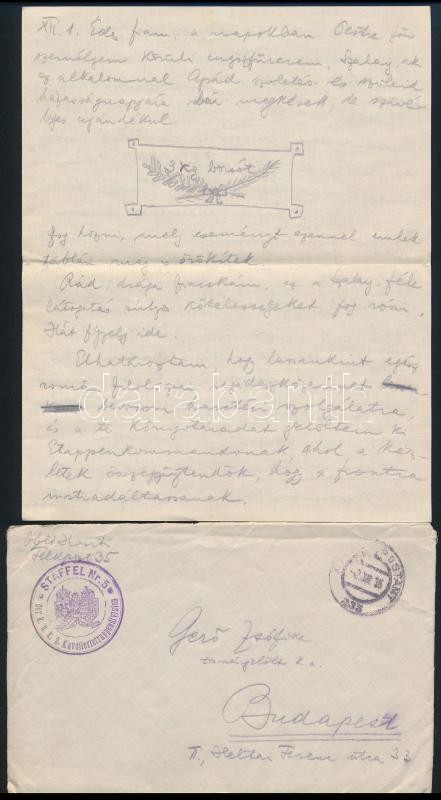 XII. 1. Édes fiam, a napokban Pestre jön
személyem körüli
az alkalommal Apád születés- és szüleid
házasságnapjára bár megkések, de szivé-
lyes ajándékul
3 kg borsót
fog hozni, mely eseményt ezennel emlék
táblán meg is örökitek.
Rád, drága fiacskám, ez a Szalay-féle
látogatás súlyos kötelességeket fog róni,
Hát figyelj ide.
Elhatároztam, hogy lassankint egész
szolgálatra,
és a te könyvtáradat jelöltem ki
Etappenkommandónak, ahol a kész-
letek összegyűjtendők, hogy a frontra
instradáltassanak.
darabanth
Feldpost 35
STAFFEL Nr. 5
K. u. K. Kavallerietruppendivision
233
Gerő Zsófia
tanárjelölt k.a.
Budapest
II., Heltai Ferenc utca 33